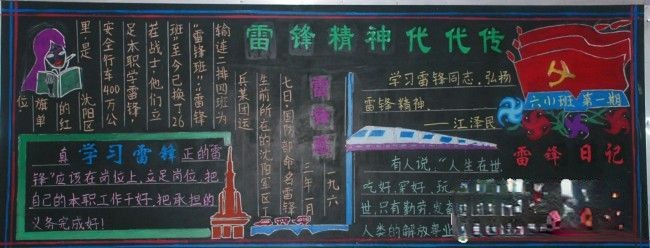 雷锋精神代代传
六小班 第一期
学习雷锋同志，弘扬
雷锋精神
——江泽民
雷锋日记
有人说，“人生在世
吃好，穿好，玩
世，只有勤劳，发奋
人类的解放事业
雷锋班
一九六
三年一月
七日，国防部命名雷锋
生前所在的沈阳军区工
兵某团运
输连二排四班为
“雷锋班”。“雷锋
班”至今已换了26
茬战士，他们立
足本职学雷锋，
安全行车400万公
里，是沈阳区
的红
旗单
位。
真学习雷锋正的雷
锋”应该在岗位上，立足岗位，把
自己的本职工作干好，把承担的
义务完成好！